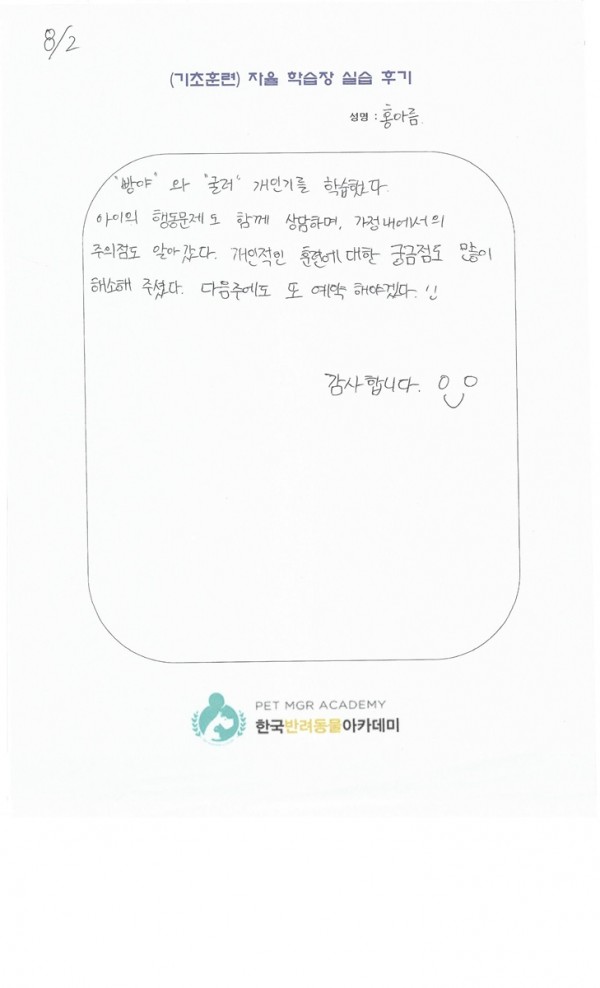 8/2
(기초훈련) 자율 학습장 실습 후기
성명 : 홍아름.
"빵야" 와 "굴러" 개인기를 학습했다.
아이의 행동문제도 함께 상담하며, 가정내에서의
주의점도 알아갔다. 개인적인 훈련에 대한 궁금점도 많이
해소해 주셨다. 다음주에도 또 예약 해야겠다. !!
감사합니다.
PET MGR ACADEMY
한국반려동물아카데미